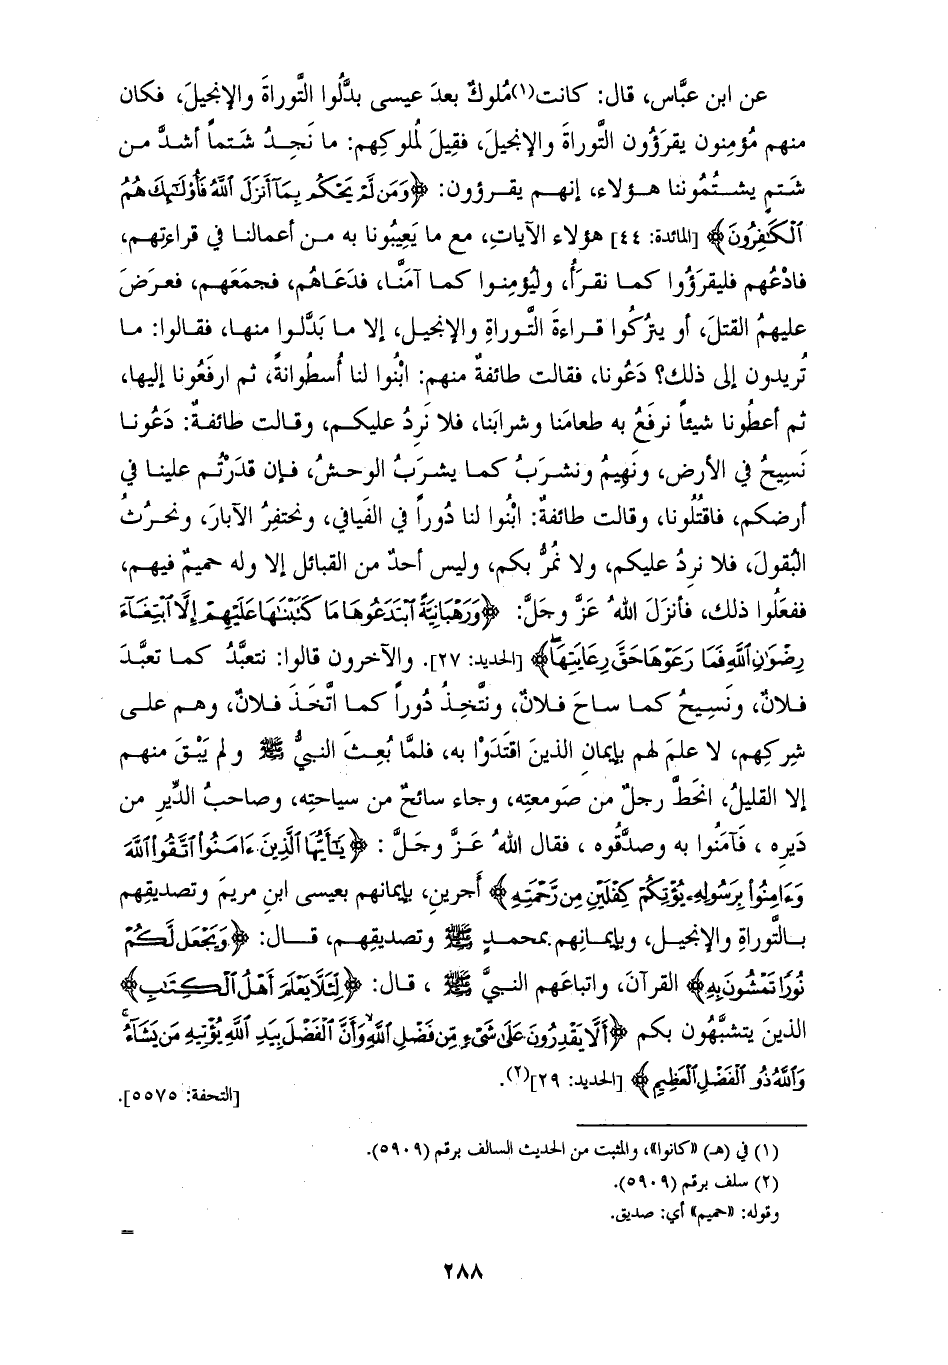 عن ابن عبَّاس، قال: كانت(١)مُلوكٌ بعدَ عيسى بدَّلُوا التَّوراةَ والإنجيلَ، فكان
منهم مُؤمِنون يقرَؤُون التَّوراةَ والإنجيلَ، فقِيلَ لمُلوكِهم: ما نَجِدُ شَتماً أشدَّ من
شَتمٍ يشتُمُوننا هؤلاء، إنهم يقرؤون: ﴿وَمَن لَّمْ يَحْكُم بِمَآ أَنزَلَ ٱللَّهُ فَأُوْلَٰٓئِكَ هُمُ
ٱلْكَٰفِرُونَ﴾ [المائدة: ٤٤] هؤلاء الآياتِ، مع ما يَعِيبُونا به من أعمالنا في قراءتِهم،
فادْعُهم فليقرَؤُوا كما نقرَأُ، وليُؤمِنوا كما آمَنَّا، فدَعَاهُم، فجمَعَهم، فعرَضَ
عليهمُ القتلَ، أو يترُكُوا قراءةَ التَّوراةِ والإنجيلِ، إلا ما بَدَّلوا منها، فقالوا: ما
تُريدون إلى ذلك؟ دَعُونا، فقالت طائفةٌ منهم: ابْنُوا لنا أُسطُوانةً، ثم ارفَعُونا إليها،
ثم أعطُونا شيئاً نرفَعُ به طعامَنا وشرابَنا، فلا نَرِدُ عليكم، وقالت طائفةٌ: دَعُونا
نَسِيحُ في الأرضِ، ونَهِيمُ ونشرَبُ كما يشرَبُ الوحشُ، فإن قدَرْتُم علينا في
أرضكم، فاقتُلُونا، وقالت طائفةٌ: ابْنُوا لنا دُوراً في الفَيافي، ونحتفِرُ الآبارَ، ونحرُثُ
البُقولَ، فلا نرِدُ عليكم، ولا نمُرُّ بكم، وليس أحدٌ من القبائل إلا وله حميمٌ فيهم،
ففعَلُوا ذلك، فأنزَلَ اللهُ عَزَّ وجَلَّ: ﴿وَرَهْبَانِيَّةً ٱبْتَدَعُوهَا مَا كَتَبْنَٰهَا عَلَيْهِمْ إِلَّا ٱبْتِغَآءَ
رِضْوَٰنِ ٱللَّهِ فَمَا رَعَوْهَا حَقَّ رِعَايَتِهَا﴾ [الحديد: ٢٧]. والآخرون قالوا: نتعبَّدُ كما تعبَّدَ
فلانٌ، ونَسِيحُ كما ساحَ فلانٌ، ونتَّخِذُ دُوراً كما اتَّخَذَ فلانٌ، وهم على
شِركِهم، لا علمَ لهم بإيمانِ الذينَ اقتَدَوْا به، فلمَّا بُعِثَ النبيُّ ﷺ ولم يَبْقَ منهم
إلا القليلُ، انحَطَّ رجلٌ من صَومعتِه، وجاء سائحٌ من سياحتِه، وصاحبُ الدَّيرِ من
دَيرِه ، فآمَنُوا به وصدَّقُوه ، فقال اللهُ عَزَّ وجَلَّ : ﴿يَٰٓأَيُّهَا ٱلَّذِينَ ءَامَنُواْ ٱتَّقُواْ ٱللَّهَ
وَءَامِنُواْ بِرَسُولِهِۦ يُؤْتِكُمْ كِفْلَيْنِ مِن رَّحْمَتِهِۦ﴾ أَجرينِ، بإيمانهم بعيسى ابنِ مريمَ وتصديقِهم
بالتَّوراةِ والإنجيلِ، وبإيمانِهم بمحمدٍ ﷺ وتصديقِهم، قال: ﴿وَيَجْعَل لَّكُمْ
نُورًا تَمْشُونَ بِهِۦ﴾ القرآنَ، واتباعَهم النبيَّ ﷺ ، قال: ﴿لِّئَلَّا يَعْلَمَ أَهْلُ ٱلْكِتَٰبِ﴾
الذينَ يتشبَّهُون بكم ﴿أَلَّا يَقْدِرُونَ عَلَىٰ شَىْءٍ مِّن فَضْلِ ٱللَّهِ وَأَنَّ ٱلْفَضْلَ بِيَدِ ٱللَّهِ يُؤْتِيهِ مَن يَشَآءُ
وَٱللَّهُ ذُو ٱلْفَضْلِ ٱلْعَظِيمِ﴾ [الحديد: ٢٩](٢).
[التحفة: ٥٥٧٥].
(١) في (هـ) «كانوا»، والمثبت من الحديث السالف برقم (٥٩٠٩).
(٢) سلف برقم (٥٩٠٩).
وقوله: «حميم» أي: صديق.
=
٢٨٨